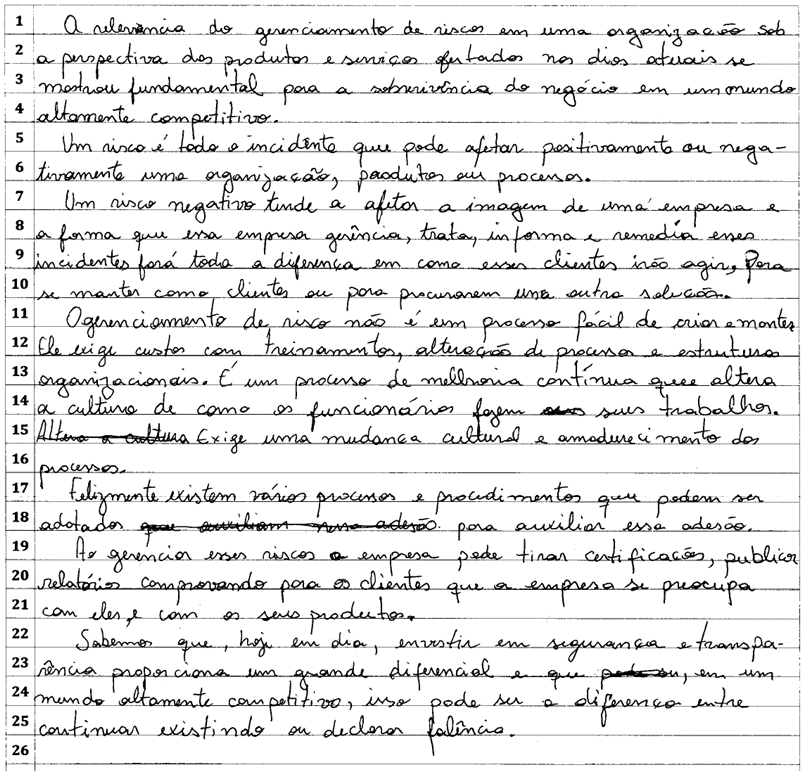 1 A relevância do gerenciamento de riscos em uma organização sob
2 a perspectiva dos produtos e serviços ofertados nos dias atuais se
3 mostrou fundamental para a sobrevivência do negócio em um mundo
4 altamente competitivo.
5 Um risco é todo o incidente que pode afetar positivamente ou nega-
6 tivamente uma organização, produtos ou processos.
7 Um risco negativo tende a afetar a imagem de uma empresa e
8 a forma que essa empresa gerência, trata, informa e remedia esses
9 incidentes fará toda a diferença em como esses clientes irão agir, Para
10 se manter como clientes ou para procurarem uma outra solução.
11 O gerenciamento de risco não é um processo fácil de criar e manter
12 Ele exige custos com treinamentos, alteração de processos e estruturas
13 organizacionais. É um processo de melhoria contínua que altera
14 a cultura de como os funcionários fazem seus trabalhos.
15 Altera a cultura Exige uma mudança cultural e amadurecimento dos
16 processos.
17 Felizmente existem vários processos e procedimentos que podem ser
18 adotados que auxiliam nessa adesão para auxiliar essa adesão.
19 Ao gerenciar esses riscos a empresa pode tirar certificações, publicar
20 relatórios comprovando para os clientes que a empresa se preocupa
21 com eles, e com os seus produtos.
22 Sabemos que, hoje em dia, investir em segurança e transpa-
23 rência proporciona um grande diferencial e que, em um
24 mundo altamente competitivo, isso pode ser a diferença entre
25 continuar existindo ou declarar falência.
26